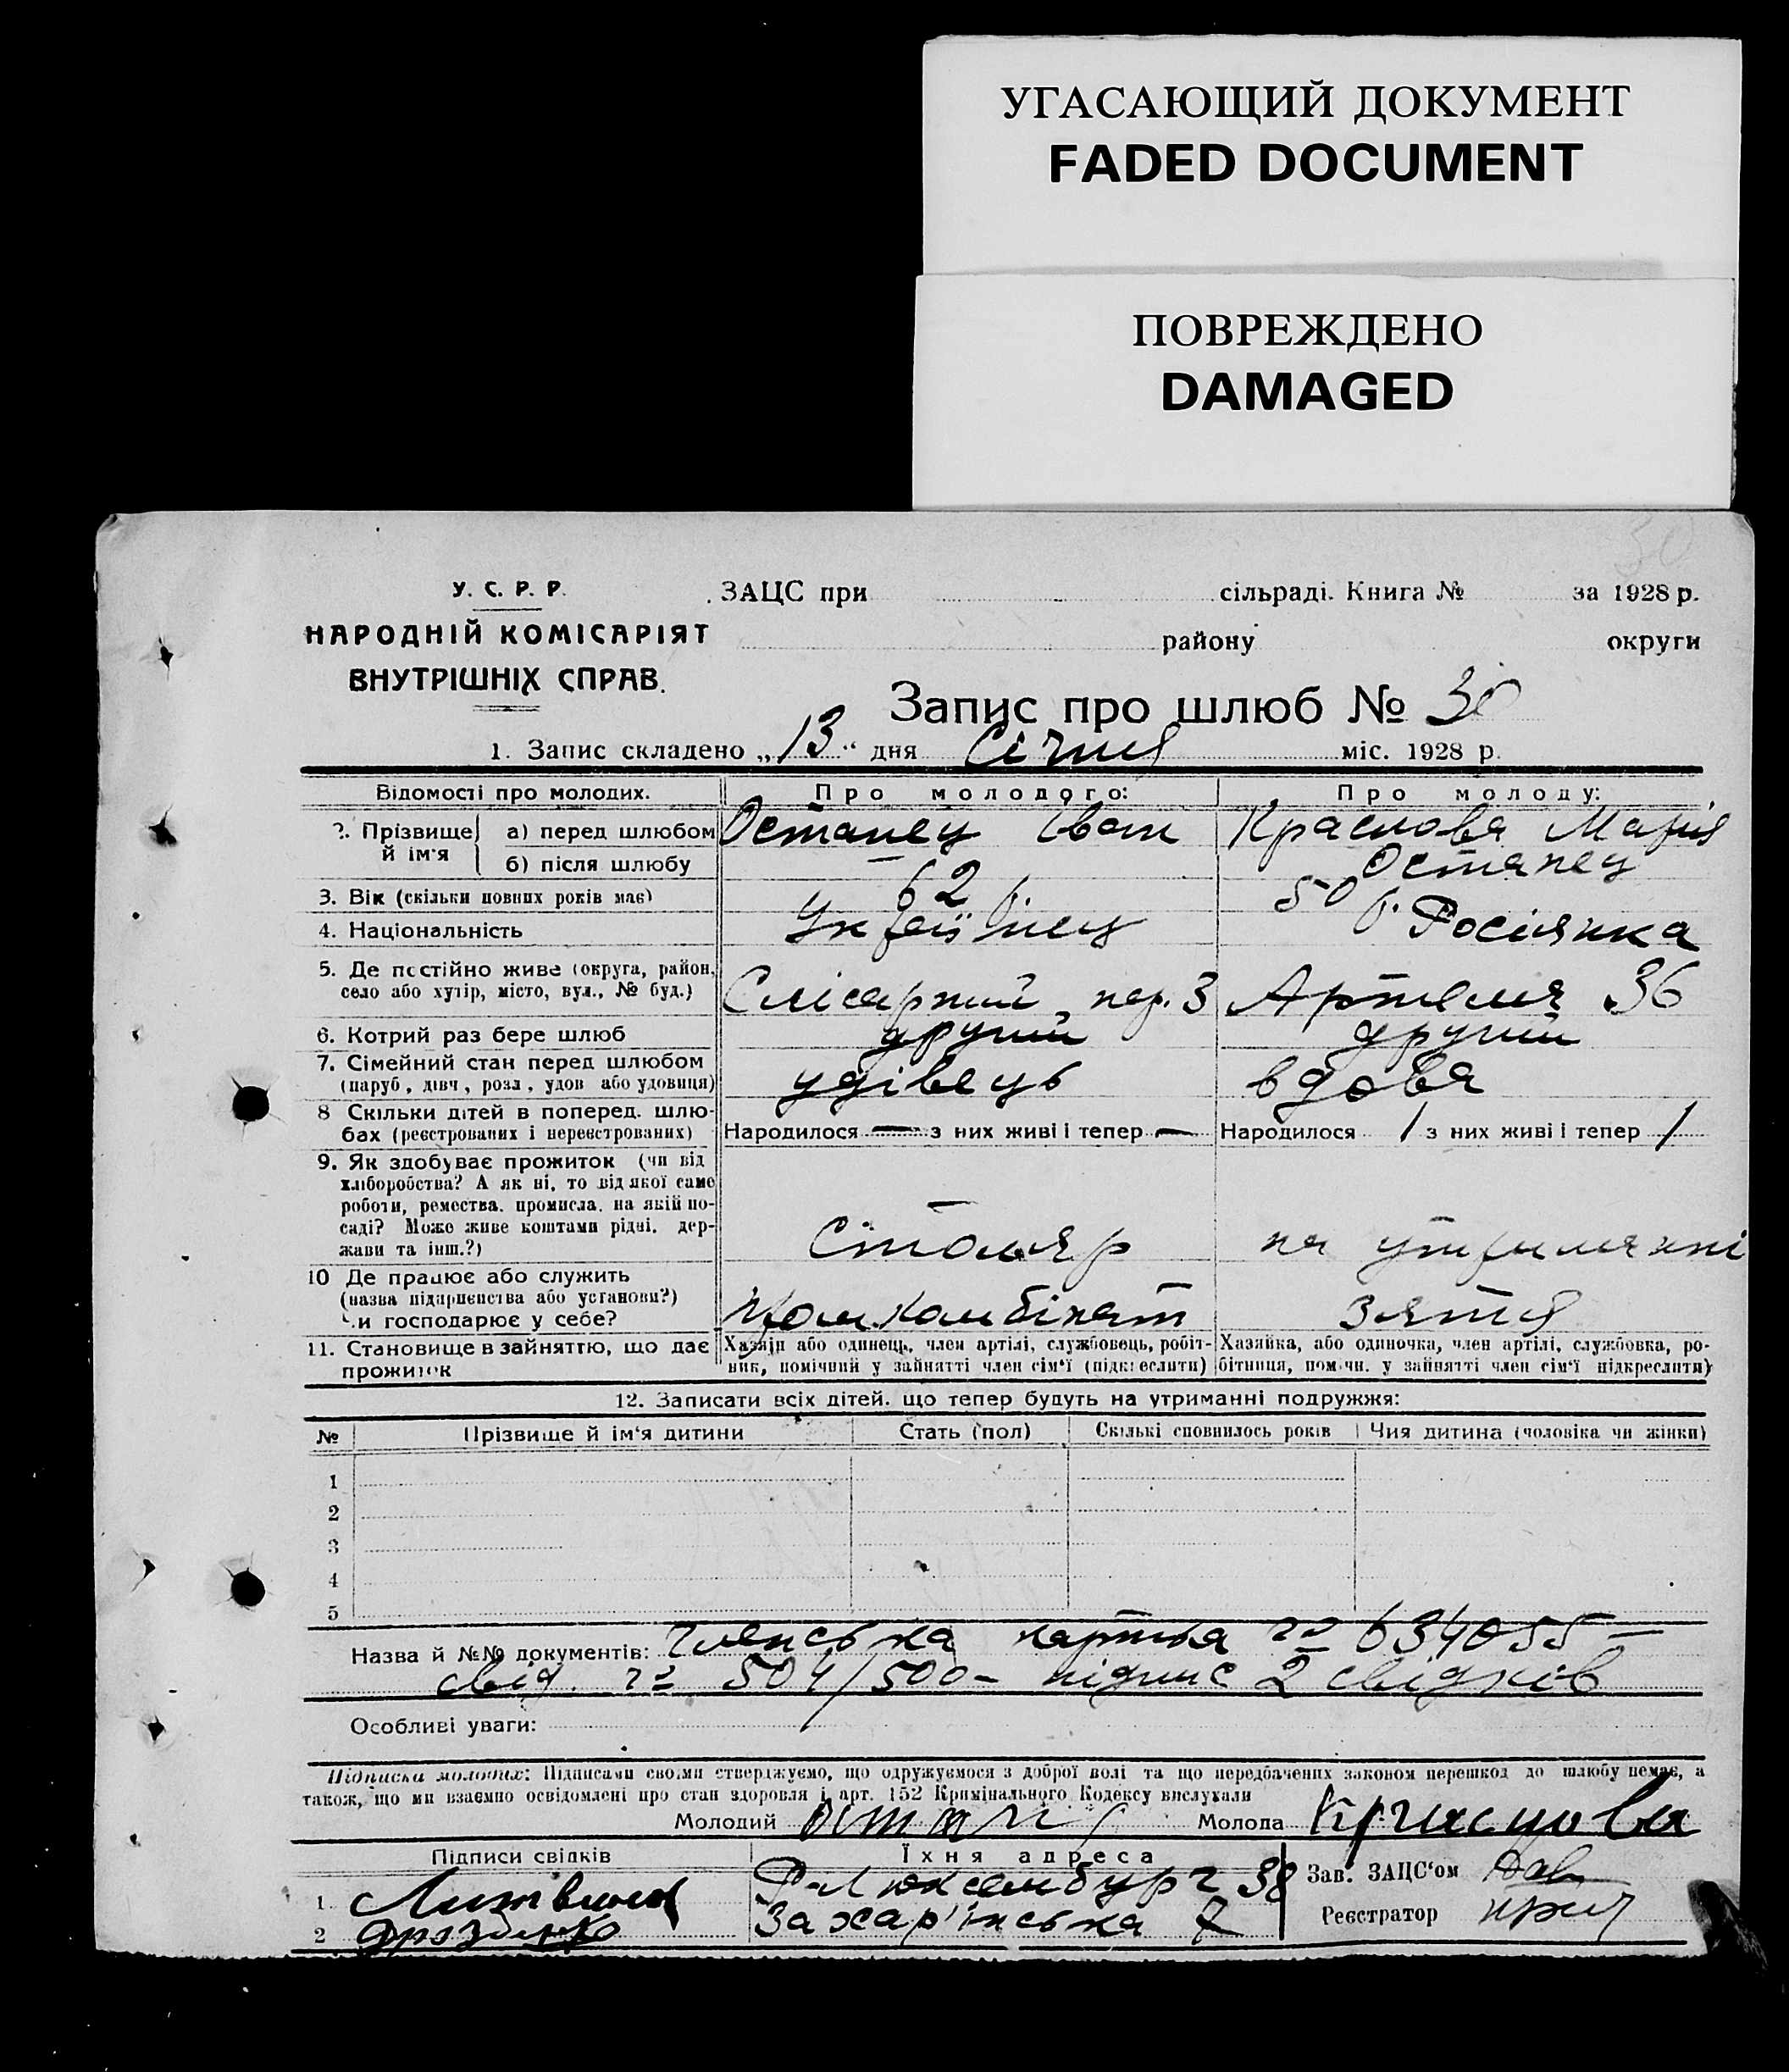 УГАСАЮЩИЙ ДОКУМЕНТ
FADED DOCUMENT
ПОВРЕЖДЕНО
DAMAGED
30
У. С. Р. Р.
НАРОДНІЙ КОМІСАРІЯТ
ВНУТРІШНІХ СПРАВ.
ЗАЦС при сільраді. Книга № за 1928 р.
району округи
Запис про шлюб № 30
1. Запис складено „13“ дня Січня міс. 1928 р.
Відомості про молодих. Про молодого: Про молоду:
2. Прізвище й ім'я а) перед шлюбом Остапец Іван Краснова Марія
б) після шлюбу — Остапец
3. Вік (скільки повних років має) 62 р. 50 р.
4. Національність Українец Росіянка
5. Де постійно живе (округа, район,
село або хутір, місто, вул., № буд.) Слісарний пер. 3 Артема 36
6. Котрий раз бере шлюб другий другий
7. Сімейний стан перед шлюбом
(паруб, дівч, розл, удов або удовиця) удівець вдова
8 Скільки дітей в поперед. шлю-
бах (реєстрованих і нереєстрованих) Народилося — з них живі і тепер — Народилося 1 з них живі і тепер 1
9. Як здобуває прожиток (чи від
хліборобства? А як ні, то від якої саме
роботи, ремества, промисла, на якій по-
саді? Може живе коштами рідні, дер-
жави та інш.?) Столяр на утриманні
10 Де працює або служить
(назва підприємства або установи?)
Чи господарює у себе? комбінат зятя
11. Становище в зайняттю, що дає
прожиток
Хазяїн або одинець, член артілі, службовець, робіт-
ник, помічний у зайнятті член сім'ї (підкреслити)
Хазяйка, або одиночка, член артілі, службовка, ро-
бітниця, помічн. у зайнятті член сім'ї підкреслити)
12. Записати всіх дітей, що тепер будуть на утриманні подружжя:
№ Прізвище й ім'я дитини Стать (пол) Скількі сповнилось років Чия дитина (чоловіка чи жінки)
1
2
3
4
5
Назва й №№ документів: Членська картка № 634055 —
свід. № 504/500 - підпис 2 свідків
Особливі уваги:
Підписка молодих: Підписами своїми стверджуємо, що одружуємося з доброї волі та що передбачених законом перешкод до шлюбу немає, а
також, що ми взаємно освідомлені про стан здоровля і арт. 152 Кримінального Кодексу вислухали
Молодий Остапец Молода Краснова
Підписи свідків Їхня адреса Зав. ЗАЦС'ом
1. Литвинов Р. Люксембург 38
2 Дрозденко Захар'їнська 7 Реєстратор